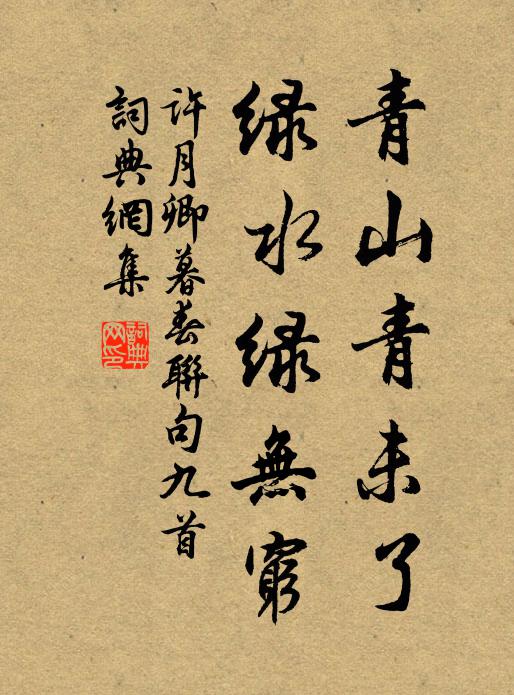 青山青未了
綠水綠無窮
許月卿暮春聯句九首
詞典網集
詞典網印